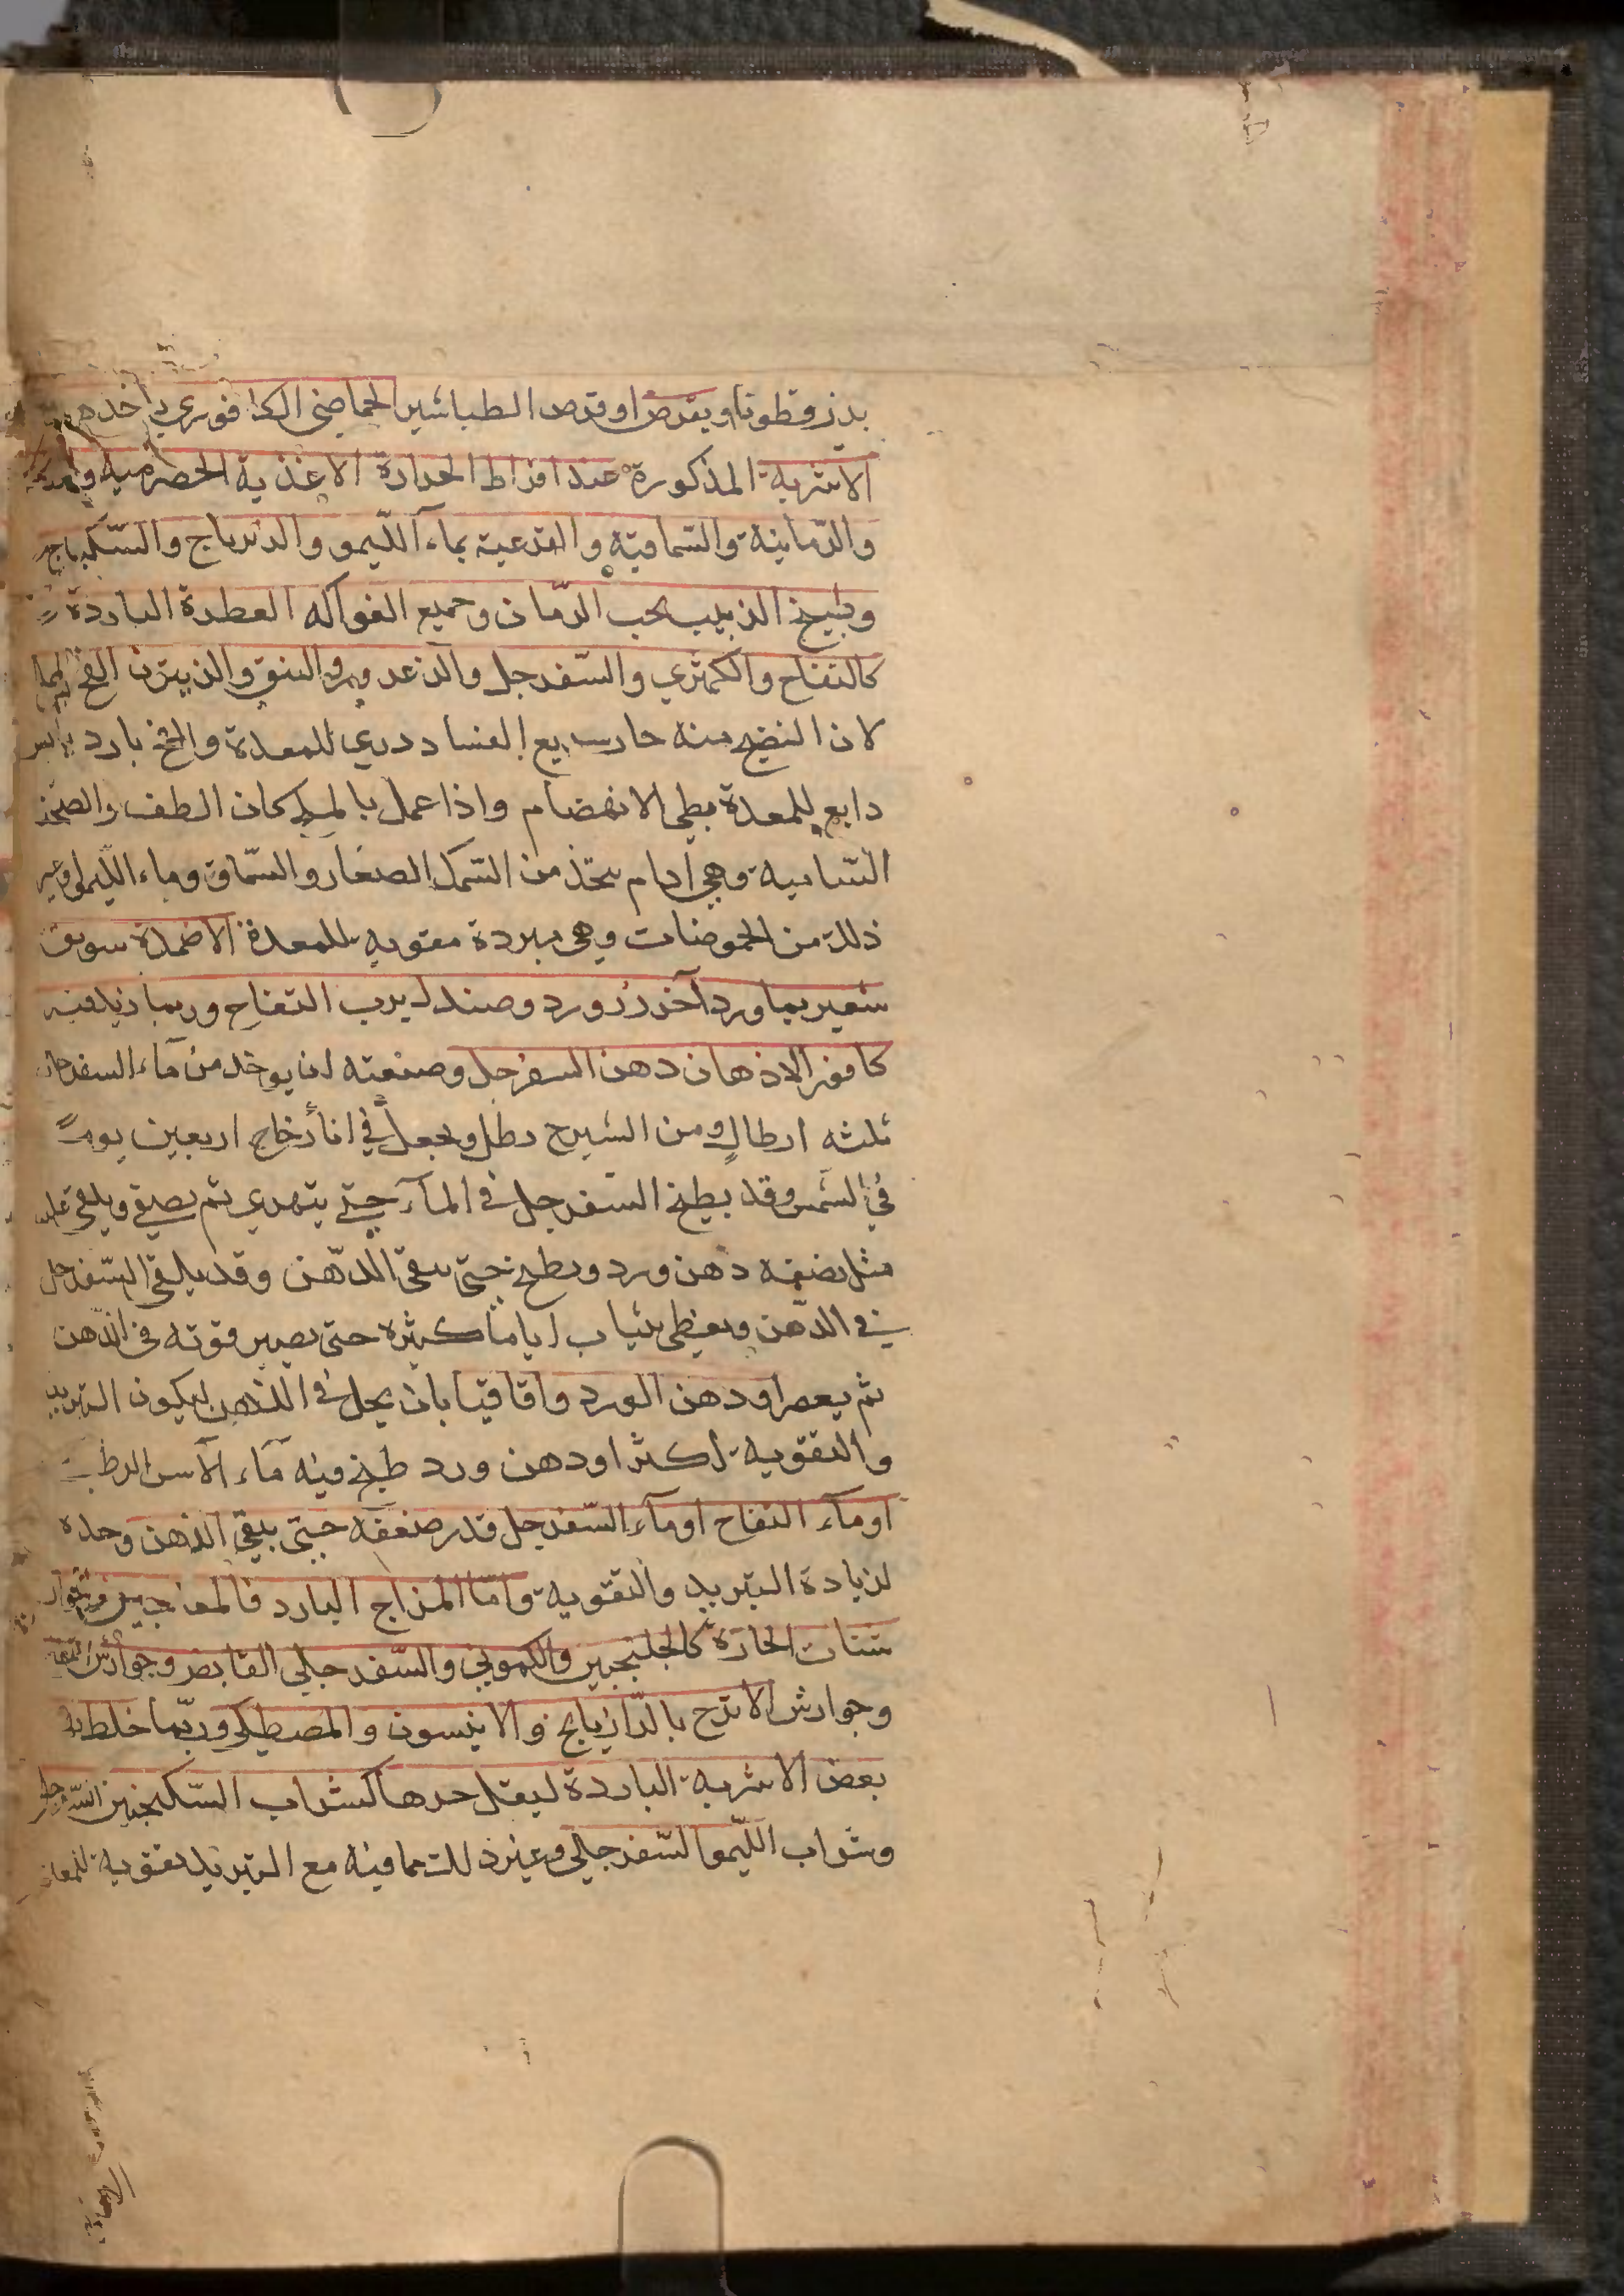 بزرقطونا وبقرص او قرص الطباشير الحماضي الكافوري باحدهم
الاشربة المذكورة عند افراط الحرارة الاغذية الحصرمية
والرمانية والسماقية والقرعية بماء الليمو والزرباج والسكباج
وطبيخ الزبيب بحب الرمان وجميع الفواكه العطرة الباردة
كالتفاح والكمثري والسفرجل والزعرور والنبق والزيتون الفج
لان النضيج منه حار سريع الفساد ردي للمعدة والفج بارد يابس
دابع للمعدة بطي الانهضام واذا عمل بالملح كان الطف والصحنا
الشامية وهي ادام يتخذ من السمك الصغار والسماق وماء الليمو وغير
ذلك من الحموضات وهي مبردة مقويه للمعدة الاضمدة سويق
شعير بماورد آخر زر ورد وصندل برب التفاح وربما زيد فيه
كافور الادهان دهن السفرجل وصنعته ان يوخد من ماء السفرجل
ثلثه ارطال ومن الشيرج رطل ويجعل في انأ زجاج اربعين يوماً
في الشمس وقد يطبخ السفرجل في المآء حتى يتهري ثم يصفي ويلقي عليه
مثل نصفه دهن ورد ويطبخ حتى يبقى الدهن وقد يلقى السفرجل
في الدهن ويغطى بثياب اياما كثيره حتى يصير قوته في الدهن
ثم يعصر او دهن الورد واقاقيا بان يحل في الدهن ليكون التبريد
والتقوية اكثر او دهن ورد طبخ فيه مآء الآس الرطب
او مآء التفاح او مآء السفرجل قدر ضعفه حتى يبقي الدهن وحده
لزيادة التبريد والتقوية واما المزاج البارد فالمعاجين والجوار
شنات الحارة كالجلنجبين والكموني والسفرجلي القابض وجوارش
وجوارش الاترج بالرازيانج والانيسون والمصطكي وربما خلط به
بعض الاشربة الباردة ليقل حرها كشراب السكنجبين السفرجلي
وشراب الليمو السفرجلي وغير ذلك مما فيه مع التبريد تقوية للمعدة